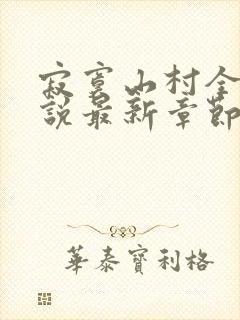 寂寞山村全
說最新章節
華泰寶利格